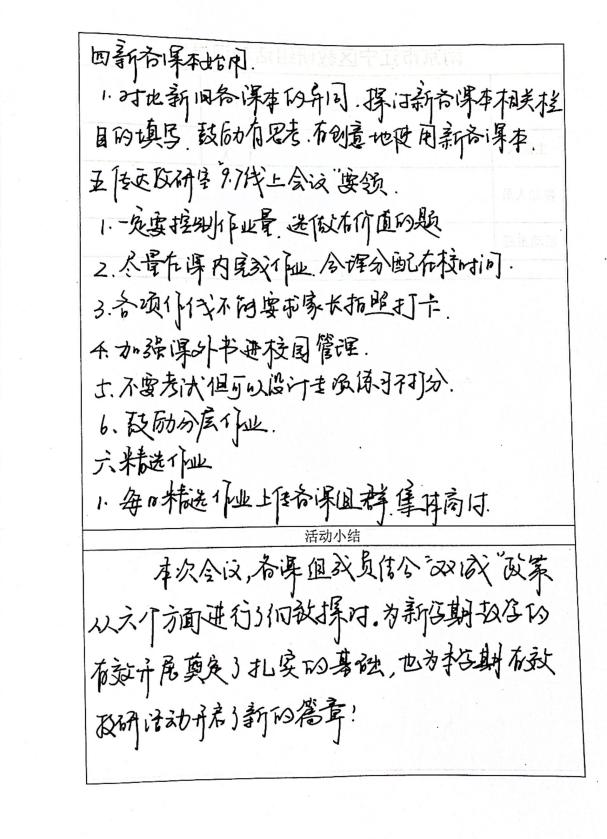 四新备课本始用.
1.对比新旧备课本的异同.探讨新备课本相关栏
目的填写.鼓励有思考.有创意地使用新备课本.
五传达教研室"9.7线上会议"要领.
1.一定要控制作业量.选做有价值的题
2.尽量在课内完成作业.合理分配在校时间.
3.各项作业不得要求家长拍照打卡.
4.加强课外书进校园管理.
5.不要考试但可以设计专项练习不打分.
6、鼓励分层作业.
六精选作业
1.每日精选作业上传备课组群.集体商讨.
活动小结
本次会议,备课组成员结合"双减"政策
从六个方面进行了细致探讨。为新学期教学的
有效开展奠定了扎实的基础,也为本学期有效
教研活动开启了新的篇章!